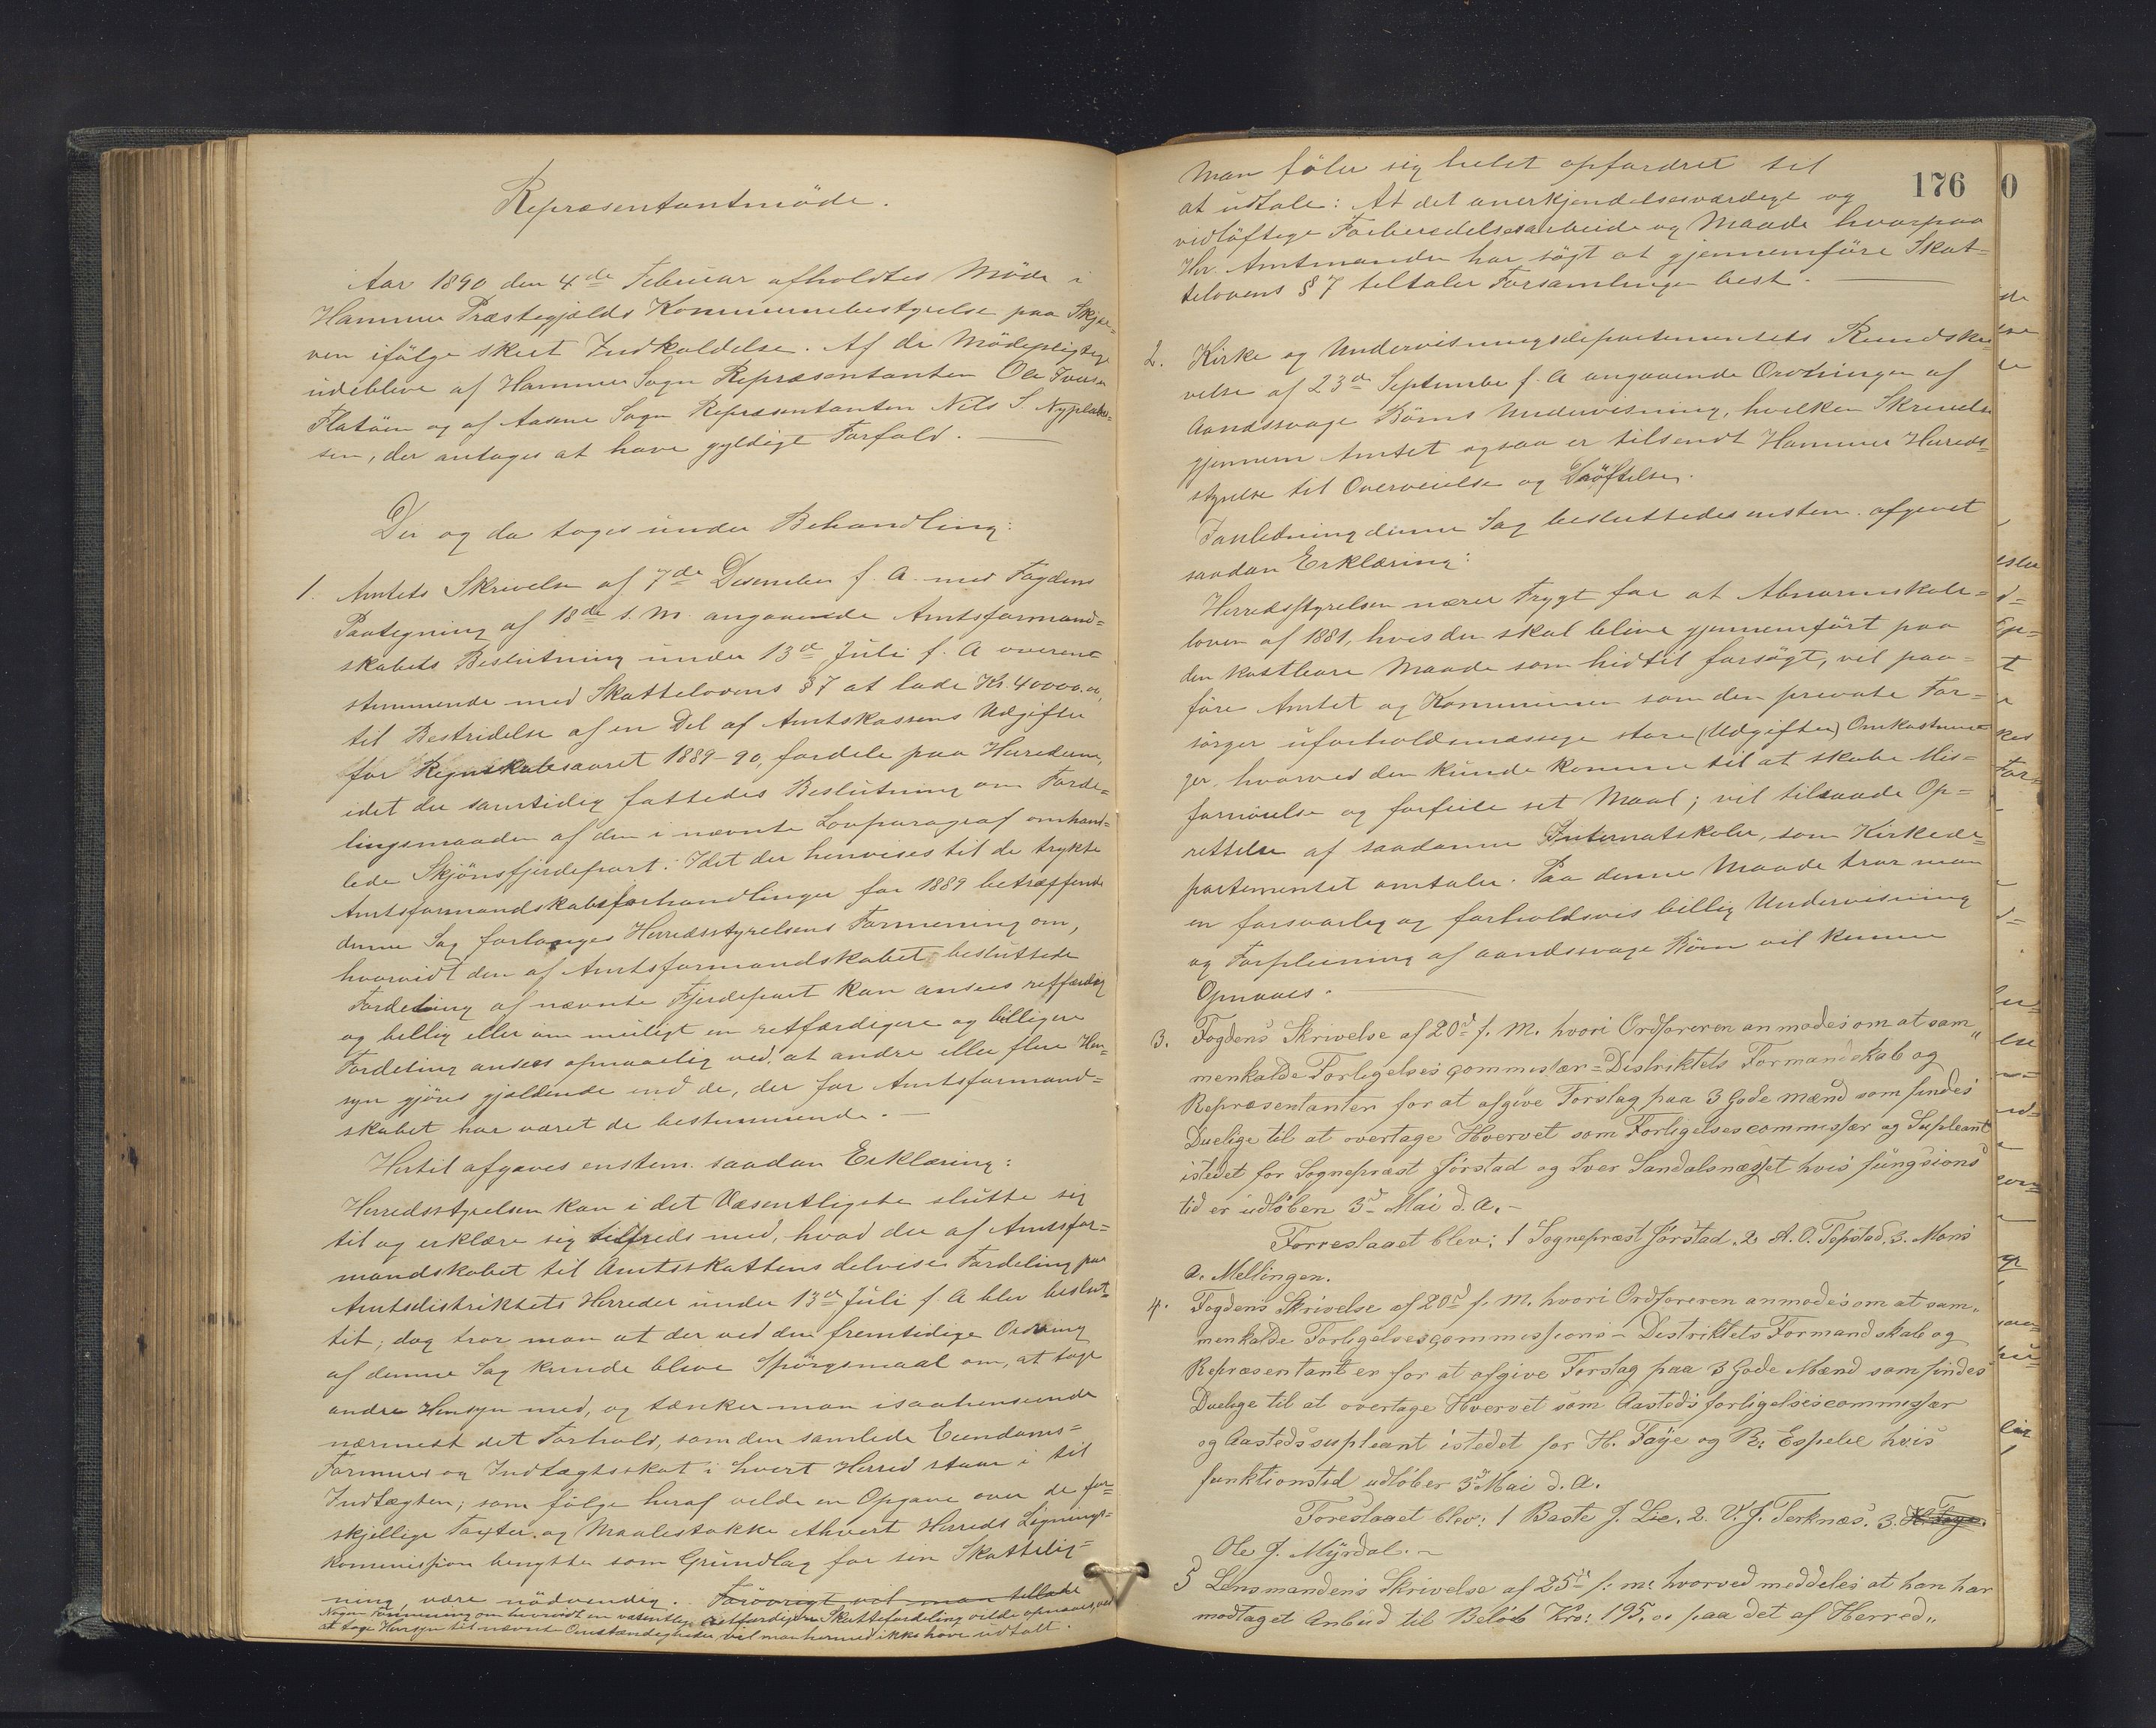 Repræsentantmöde.
Aar 1890 den 4de Februar afholdtes Möde i
Hammer Præstegjælds Kommunebestyrelse paa Skjær-
ven ifölge skeet Indkaldelse. Af de Mödepligtige
udebleve af Hammer Sogn Repræsentanten Ole Iversen
Flatöen og af Aasene Sogn Repræsentanten Nils S. Nyplads-
sen, der antages at have gyldige Forfald.
Der og da toges under Behandling:
1. Amtets Skrivelse af 7de Desember f. A. med Fogdens
Paategning af 18de s. M. angaaende Amtsformand=
skabets Beslutning under 13de Juli f. A overens=
stemmende med Skattelovens § 7 at lade Kr. 40000.00,
til Bestridelse af en Del af Amtskassens Udgifter
for Regnskabsaaret 1889-90, fordele paa Herederne,
idet der samtidig fattedes Beslutning om Forde=
lingsmaaden af den i nævnte Lovparagraf omhand=
lede Skjönsfjerdepart. Idet der henvises til de trykte
Amtsformandskabsforhandlinger for 1889 betræffende
denne Sag forlanges Herredsstyrelsens Formening om,
hvorvidt den af Amtsformandskabet besluttede
Fordeling af nævnte Fjerdepart kan ansees retfærdig
og billig eller om muligt en retfærdigere og billigere
Fordeling ansees opnaaelig ved, at andre eller flere Hen-
syn gjöres gjældende end de, der for Amtsformand=
skabet har været de bestemmende. —
Hertil afgaves enstem. saadan Erklæring:
Herredsstyrelsen kan i det Væsentligste slutte sig
til og erklære sig tilfreds med, hvad der af Amtsfor=
mandskabet til Amtsskattens delvise Fordeling paa
Amtsdistriktets Herreder under 13de Juli f. A blev beslut-
tet; dog tror man at der ved den fremtidige Ordning
af denne Sag kunde blive Spörgsmaal om, at tage
andre Hensyn med, og tænker man isaahenseende
nærmest det Forhold, som den samlede Eiendoms=
Formues og Indtægtsskat i hvert Herred staar i til
Indtægten; som fölge heraf vilde en Opgave over de for=
skjellige Taxter og Maalestokke ethvert Herreds Lignings=
kommission benytter som Grundlag for sin Skattelig=
ning, være nödvendig. Forövrigt vil man tillade
Nogen Formening om hvorvidt en væsentlig retfærdigere Skattefordeling vilde opnaaes, ved
at tage Hensyn til nævnte Omstændigheder, vil man hermed ikke have udtalt.
176
Man föler sig heldst opfordret til
at udtale: At det anerkjendelsesværdige og
vidlöftige Forberedelsesarbeide og Maade hvorpaa
Hr. Amtmanden har sögt at gjennemföre Skat=
telovens § 7 tiltaler Forsamlingen best.
2. Kirke og Undervisningsdepartementets Rundskri-
velse af 23de September f. A angaaende Ordningen af
Aandssvage Börns Undervisning, hvilken Skrivelse
gjennem Amtet ogsaa er tilsendt Hammer Hereds-
styrelse til Overveielse og Dröftelse.
I anledning denne Sag besluttedes enstem. afgivet
saadan Erklæring:
Herredsstyrelsen nærer Frygt for at Abnormskole=
loven af 1881, hvis den skal blive gjennemfört paa
den kostbare Maade som hidtil forsögt, vil paa=
före Amtet og Kommunen som den private For=
sörger uforholdsmæssige store (Udgifter) Omkostnin=
ger, hvorved den kunde komme til at skabe Mis=
fornöielse og forfeile sit Maal; vil tilraade Op=
rettelse af saadanne Internatskoler, som Kirkede=
partementet omtaler. Paa denne Maade tror man
en forsvarlig og forholdsvis billig Undervisning
og Forpleining af aandssvage Börn vil kunne
Opnaaes.
3. Fogdens Skrivelse af 20d f. M. hvori Ordføreren anmodes om at sam„
menkalde Forligelses commissær = Distriktets Formandskab og
Repræsentanter for at afgive Forslag paa 3 Gode Mænd som findes
Duelige til at overtage Hvervet som Forligelsescommissær og Supleant
istedet for Sognepræst Jörstad og Iver Sandalsnæsset hvis fungsions
tid er udløben 3d Mai d. A. –
Forreslaaet blev: 1 Sognepræst Jörstad, 2 A. O. Tepstad, 3. Mons
A. Mellingen.
4. Fogdens Skrivelse af 20d f. M. hvori Ordføreren anmodes om at sam„
menkalde Forligelsescommissions – Distriktets Formandskab og
Repræsentanter for at afgive Forslag paa 3 Gode Mænd som findes
Duelige til at overtage Hvervet som Aasteds forligelsescommissær
og Aastedssupleant istedet for H. Faÿe og R. Espelie hvis
funktionstid udløber 3d Mai d. A.
Foreslaaet blev: 1 Beste J. Lie, 2. V. J. Terknæs, 3. H. Faye.
Ole J. Myrdal. –
5 Lensmandens Skrivelse af 25d f. M. hvorved meddeles at han har
modtaget Anbud til Beløb Kro: 195,00 paa det af Herred„